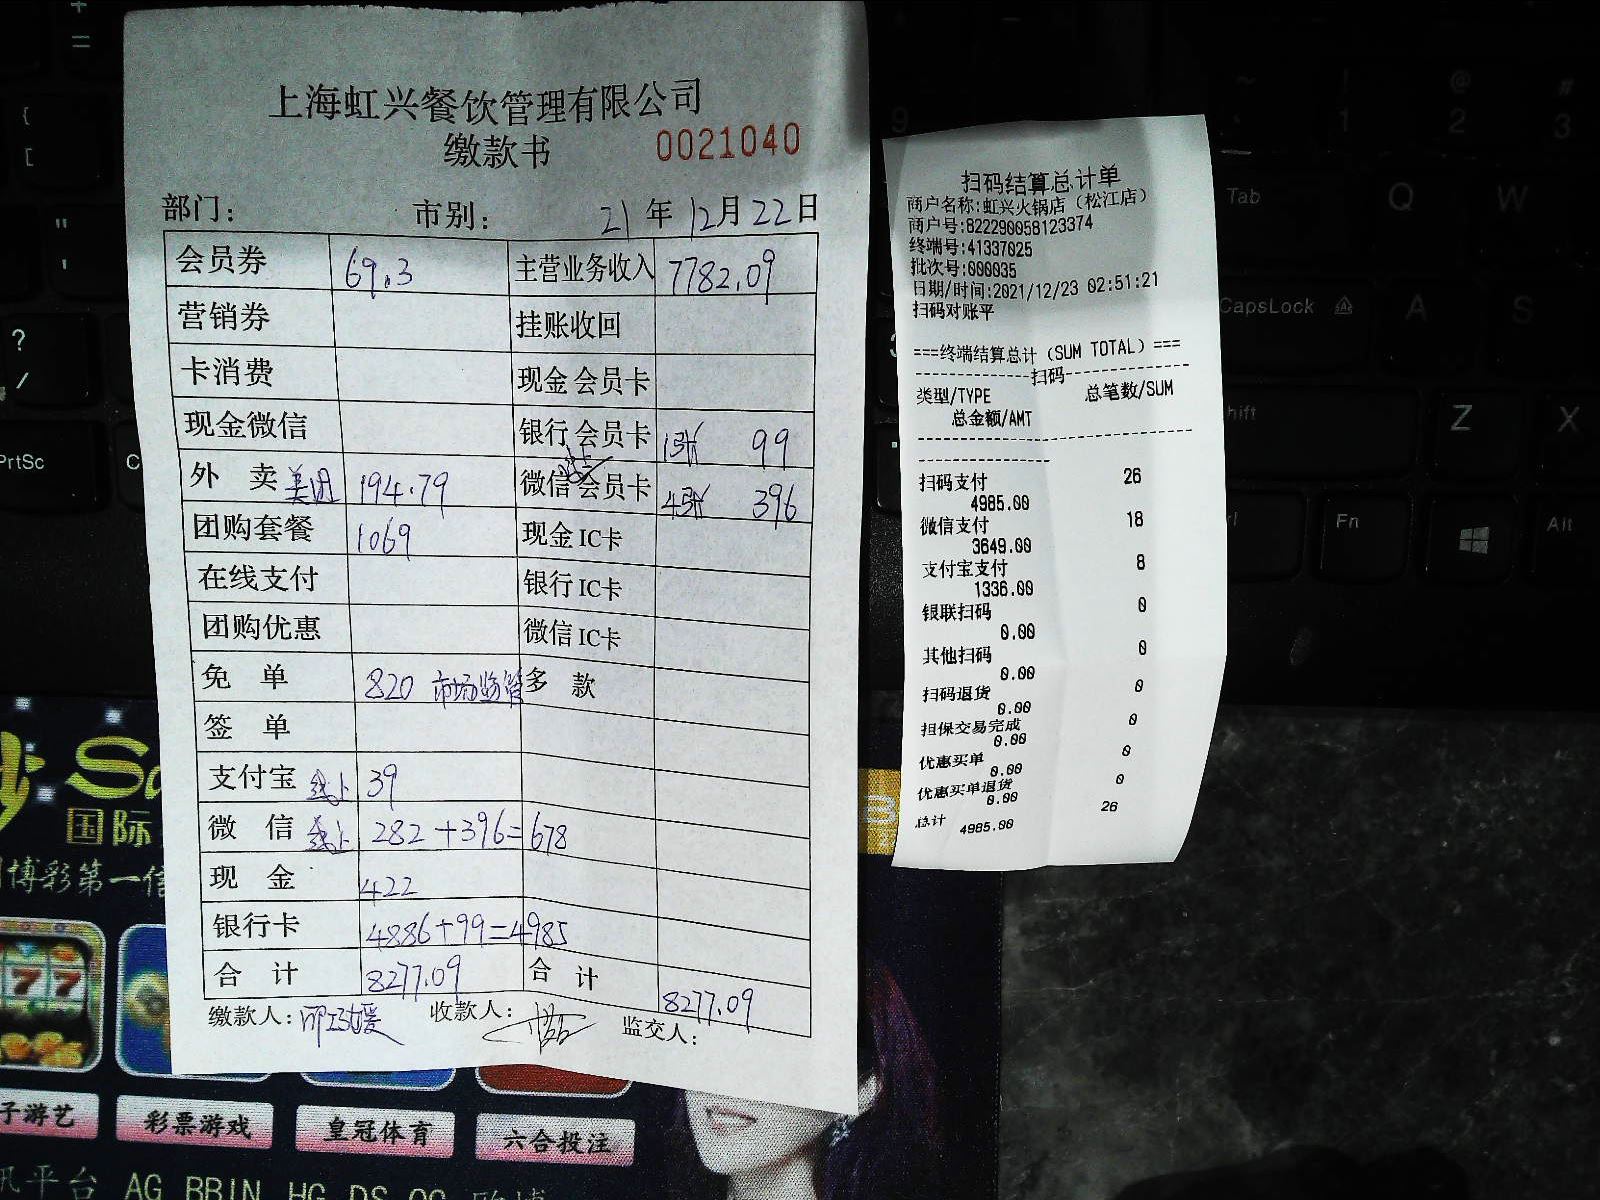 上海虹兴餐饮管理有限公司
缴款书 0021040
部门: 市别: 21 年 12 月 22 日
会员券 69.3 主营业务收入 7782.09
营销券 挂账收回
卡消费 现金会员卡
现金微信 银行会员卡 1张 99
外 卖 美团 194.79 微信会员卡 4张 396
团购套餐 1069 现金IC卡
在线支付 银行IC卡
团购优惠 微信IC卡
免 单 820 市场监管 多 款
签 单
支付宝 线上 39
微 信 线上 282+396=678
现 金 422
银行卡 4886+99=4985
合 计 8277.09 合 计 8277.09
缴款人: 收款人: 监交人:
扫码结算总计单
商户名称:虹兴火锅店（松江店）
商户号:822290058123374
终端号:41337025
批次号:000035
日期/时间:2021/12/23 02:51:21
扫码对账平
===终端结算总计（SUM TOTAL）===
扫码
类型/TYPE 总笔数/SUM
总金额/AMT
扫码支付 26
4985.00
微信支付 18
3649.00
支付宝支付 8
1336.00
银联扫码 0
0.00
其他扫码 0
0.00
扫码退货 0
0.00
担保交易完成 0
0.00
优惠买单 0
0.00
优惠买单退货 0
0.00
总计 26
4985.00
PrtSc
Tab
Q
W
CapsLock
A
S
Z
X
Fn
Alt
国际
博彩第一
子游艺
彩票游戏
皇冠体育
六合投注
平台 AG BBIN HG DS OG